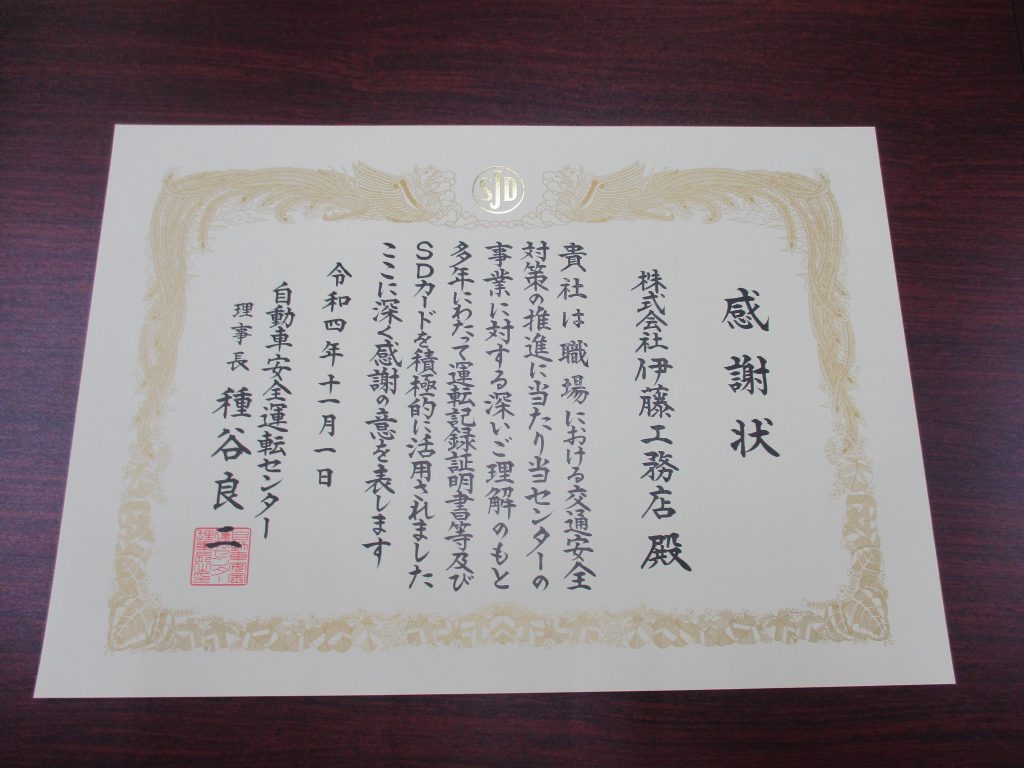 SJD
感謝状
株式会社伊藤工務店殿
貴社は職場における交通安全
対策の推進に当たり当センターの
事業に対する深いご理解のもと
多年にわたって運転記録証明書等及び
SDカードを積極的に活用されました
ここに深く感謝の意を表します
令和四年十一月一日
自動車安全運転センター
理事長 種谷良二